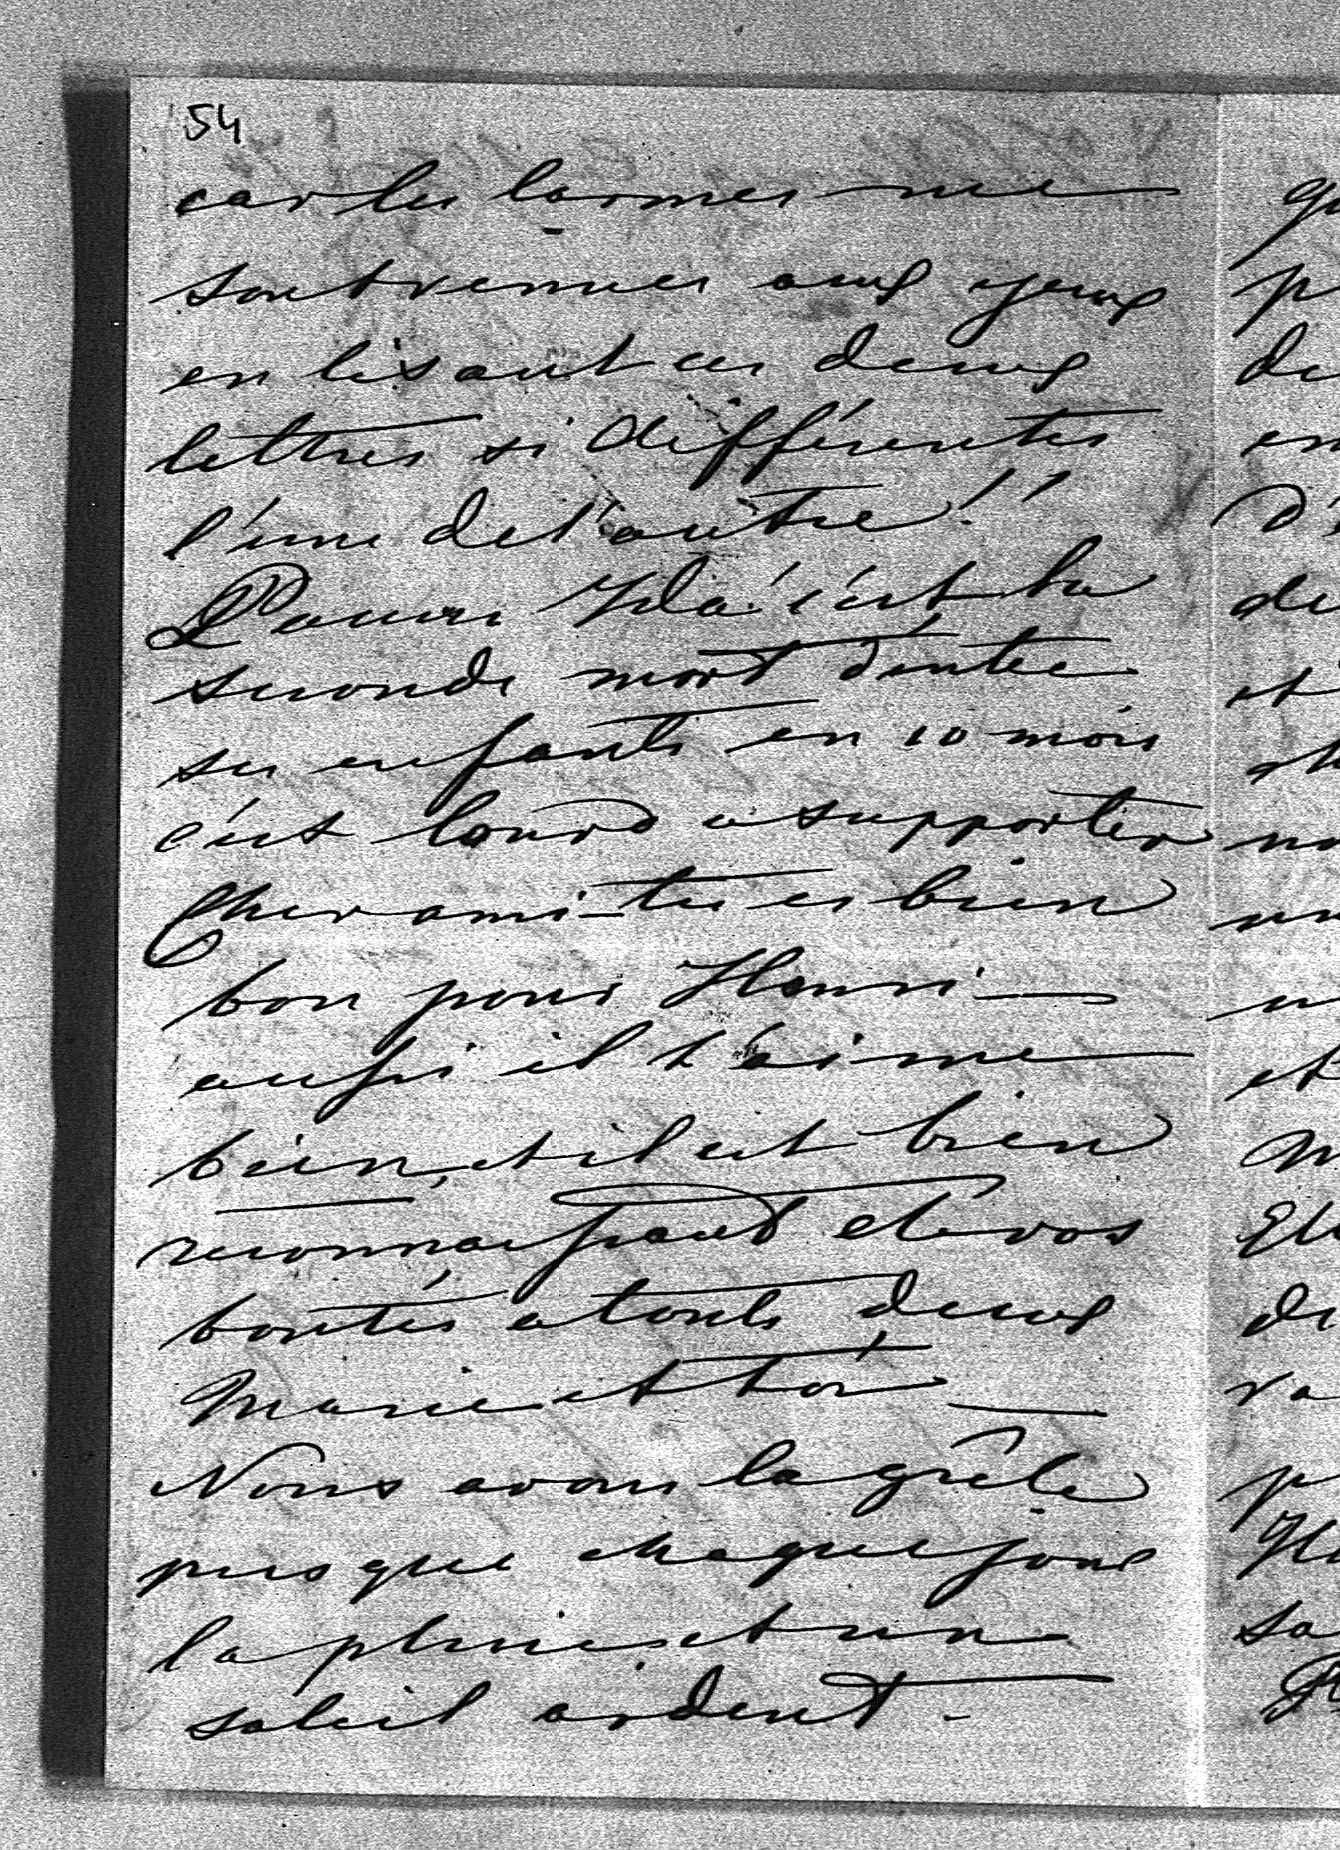 54
car les larmes me
sont venues aux yeux
en lisant ces deux
lettres si différentes
l'une de l'autre!!
Pauvre Ida c'est la
seconde mort d'entre
ses enfants en 10 mois
c'est lourd a supporter
Cher ami - tu es bien
bon pour Henri —
aussi il t'aime
bien, et il est bien
reconnaissant de vos
bontés a touts deux
Marie et toi —
Nous avons la grêle
presque chaque jour
la pluie et un
soleil ardent -